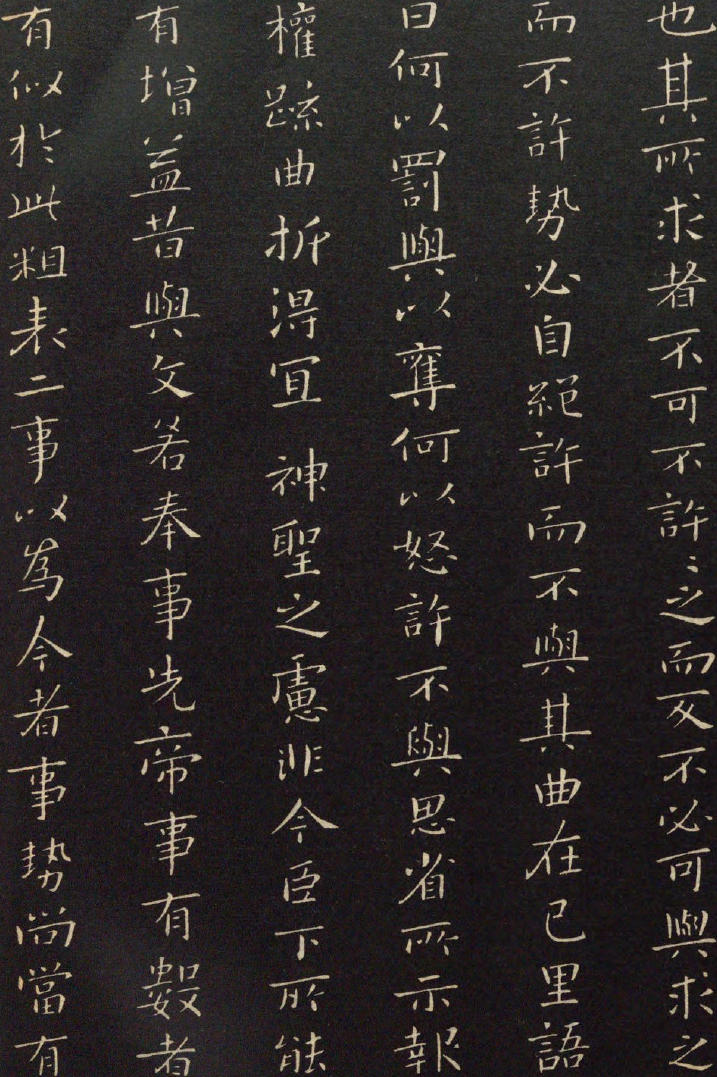 也其所求者不可不許〻之而反不必可與求之
而不許勢必自絕許而不與其曲在已里語
曰何以罰與以奪何以怒許不與思省所示報
權疏曲折得宜 神聖之慮非今臣下所能
有增益昔與文若奉事先帝事有數者
有似於此粗表二事以為今者事勢尚當有